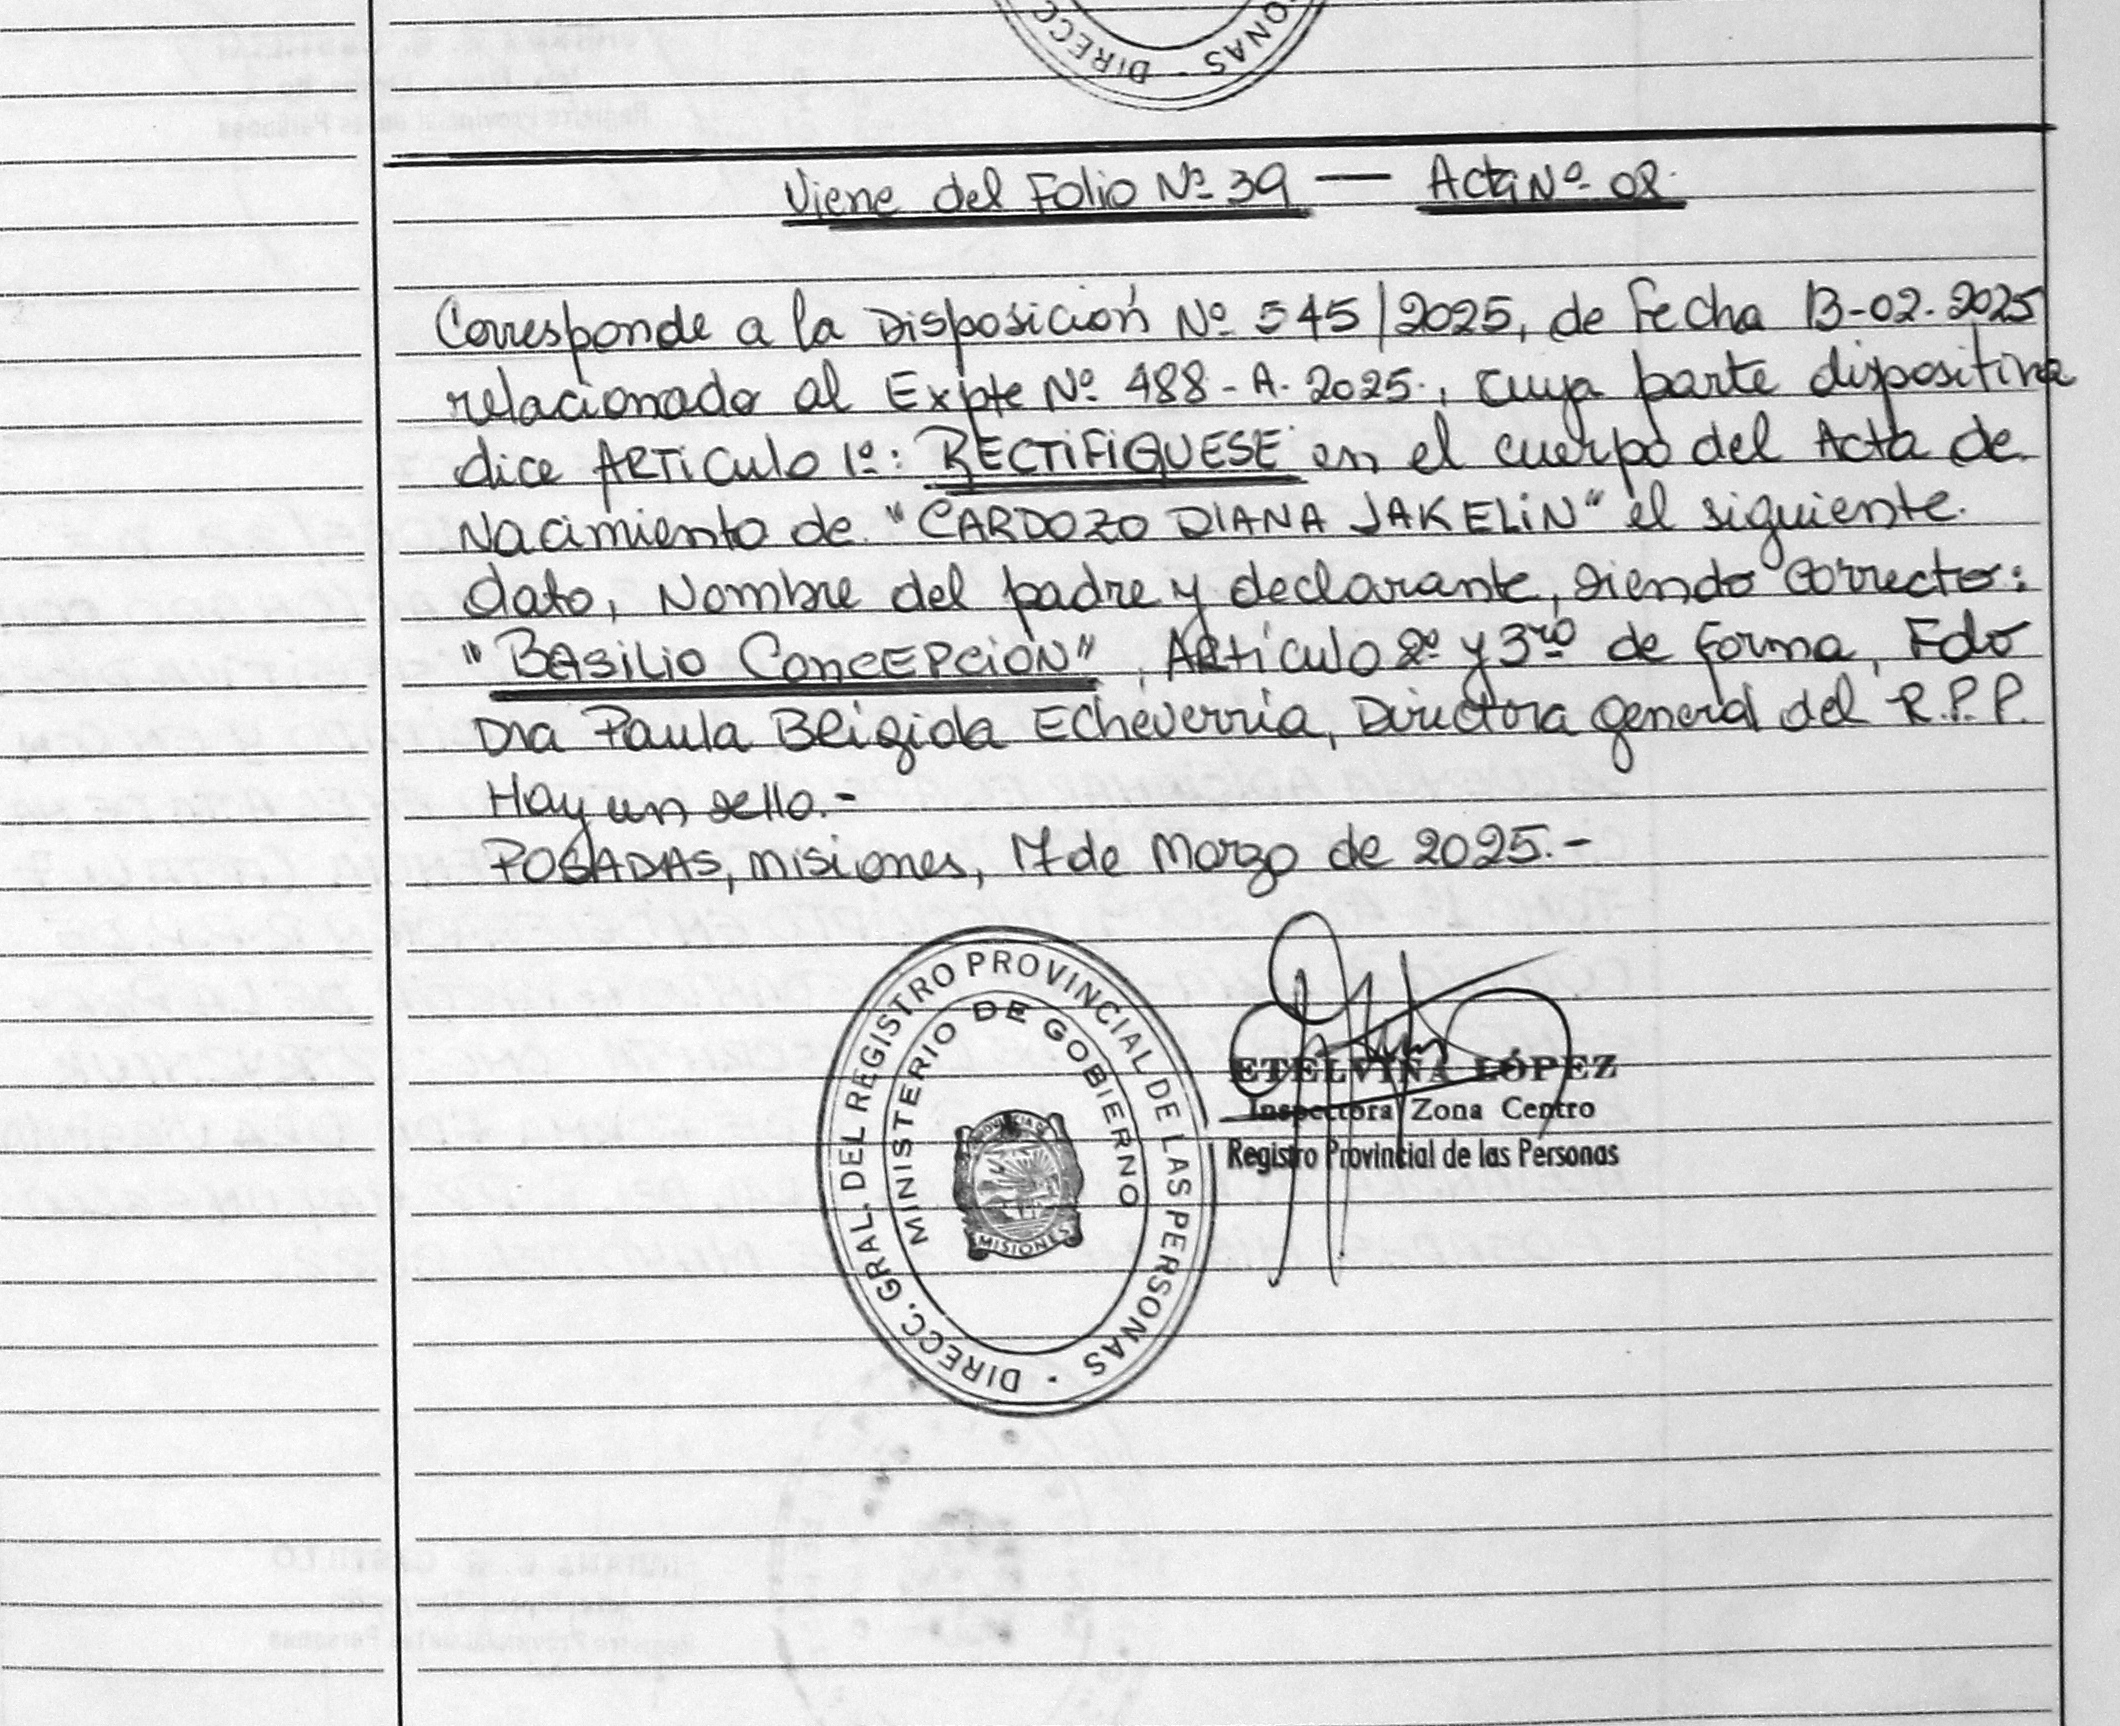 DIRECC
SONAS
Viene del Folio Nº 39 — Acta Nº 08.
Corresponde a la Disposición Nº 545/2025, de Fecha 13-02-2025
relacionado al Expte Nº 488-A-2025., cuya parte dispositiva
dice ARTICULO 1º: RECTIFIQUESE en el cuerpo del Acta de
Nacimiento de "CARDOZO DIANA JAKELIN" el siguiente
dato, Nombre del padre y declarante, siendo correcto:
"BASILIO CONCEPCIÓN", Artículo 2º y 3ro de forma, Fdo
Dra Paula Brigida Echeverria, Directora general del R.P.P.
Hay un sello.-
POSADAS, misiones, 17 de Marzo de 2025.-
DIRECC. GRAL. DEL REGISTRO PROVINCIAL DE LAS PERSONAS
MINISTERIO DE GOBIERNO
MISIONES
ETELVINA LÓPEZ
Inspectora Zona Centro
Registro Provincial de las Personas